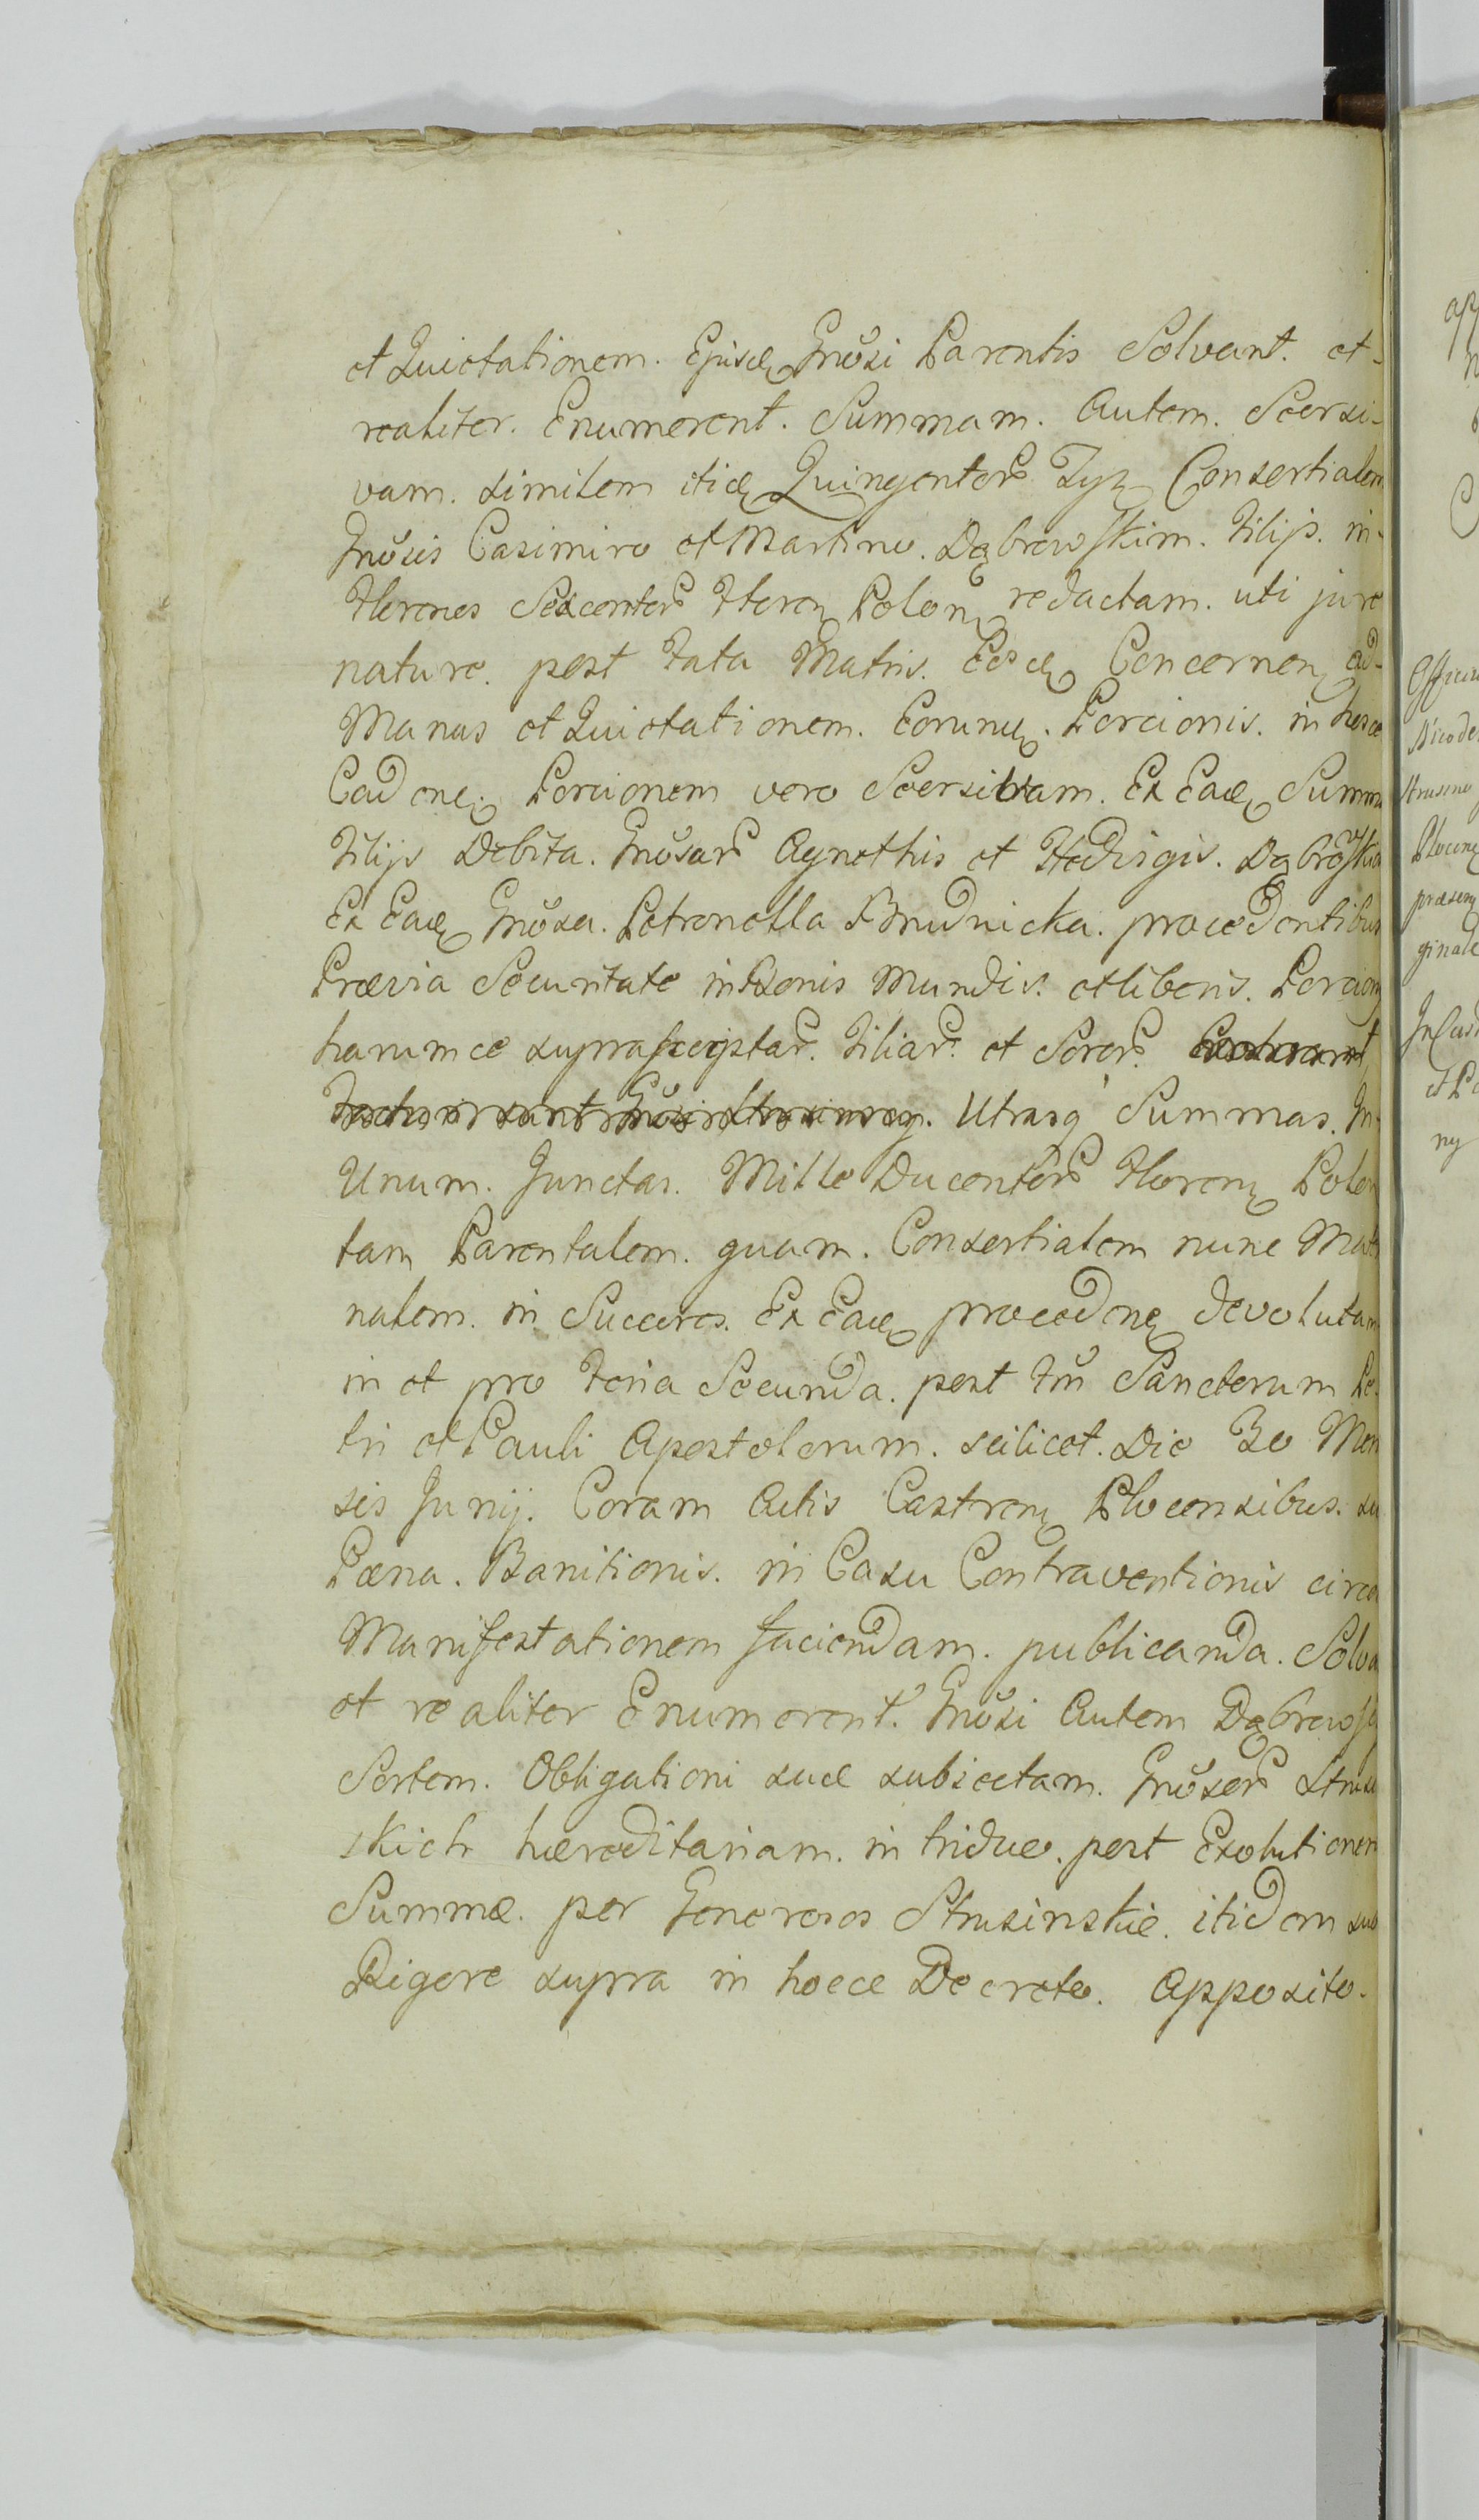 et Quietationem. Ejusd Gnosi Parentis Solvant. et
realiter. Enumerent. Summam. Autem. Seorsi-
vam. similem itid Quingentor Tyz Consortialem
Gnosis Casimiro et Martino. Dąbrowskim. Filijs. in
Florenos Sexcentor Floren Polon redactam. uti jure
nature. post Fata Matris. Eosd Concernen ad
Manus et Quietationem. Eorund. Porcionis. in hosce
Cadenc. Porcionem vero Seorsivam. Ex Ead Summa
Filijs Debita. Gnosar Agnethis et Hedvigis. Dąbrowska
Ex Ead Gnosa. Petronella Brudnicka. procedentibus
Prævia Securitate in Bonis Mundis. et liberis. Porcion
harumce suprascriptar. Filiar. et Soror.
Utrasq Summas. In
Unum. Junctas. Mille Ducentor Floren Polon
tam Parentalem. quam. Consortialem nunc Mater
nalem. in Succeres. Ex Ead procedenc devolutam
in et pro Feria Secunda. post Fm Sanctorum Pe-
tri et Pauli Apostolorum. scilicet. Die 30 Men
sis Junij. Coram Actis Castren Plocensibus. su
Pæna. Banitionis. in Casu Contraventionis circa
Manifestationem faciendam. publicanda. Solva
et realiter Enumerent. Gnosi Autem Dąbrowsc
Sortem. Obligationi suæ subiectam. Gnosor Strusi
skich hæreditariam. in triduo. post Exolutionem
Summæ. per Generosos Strusinskie. itidem sub
Rigore supra in hocce Decreto. Apposito.